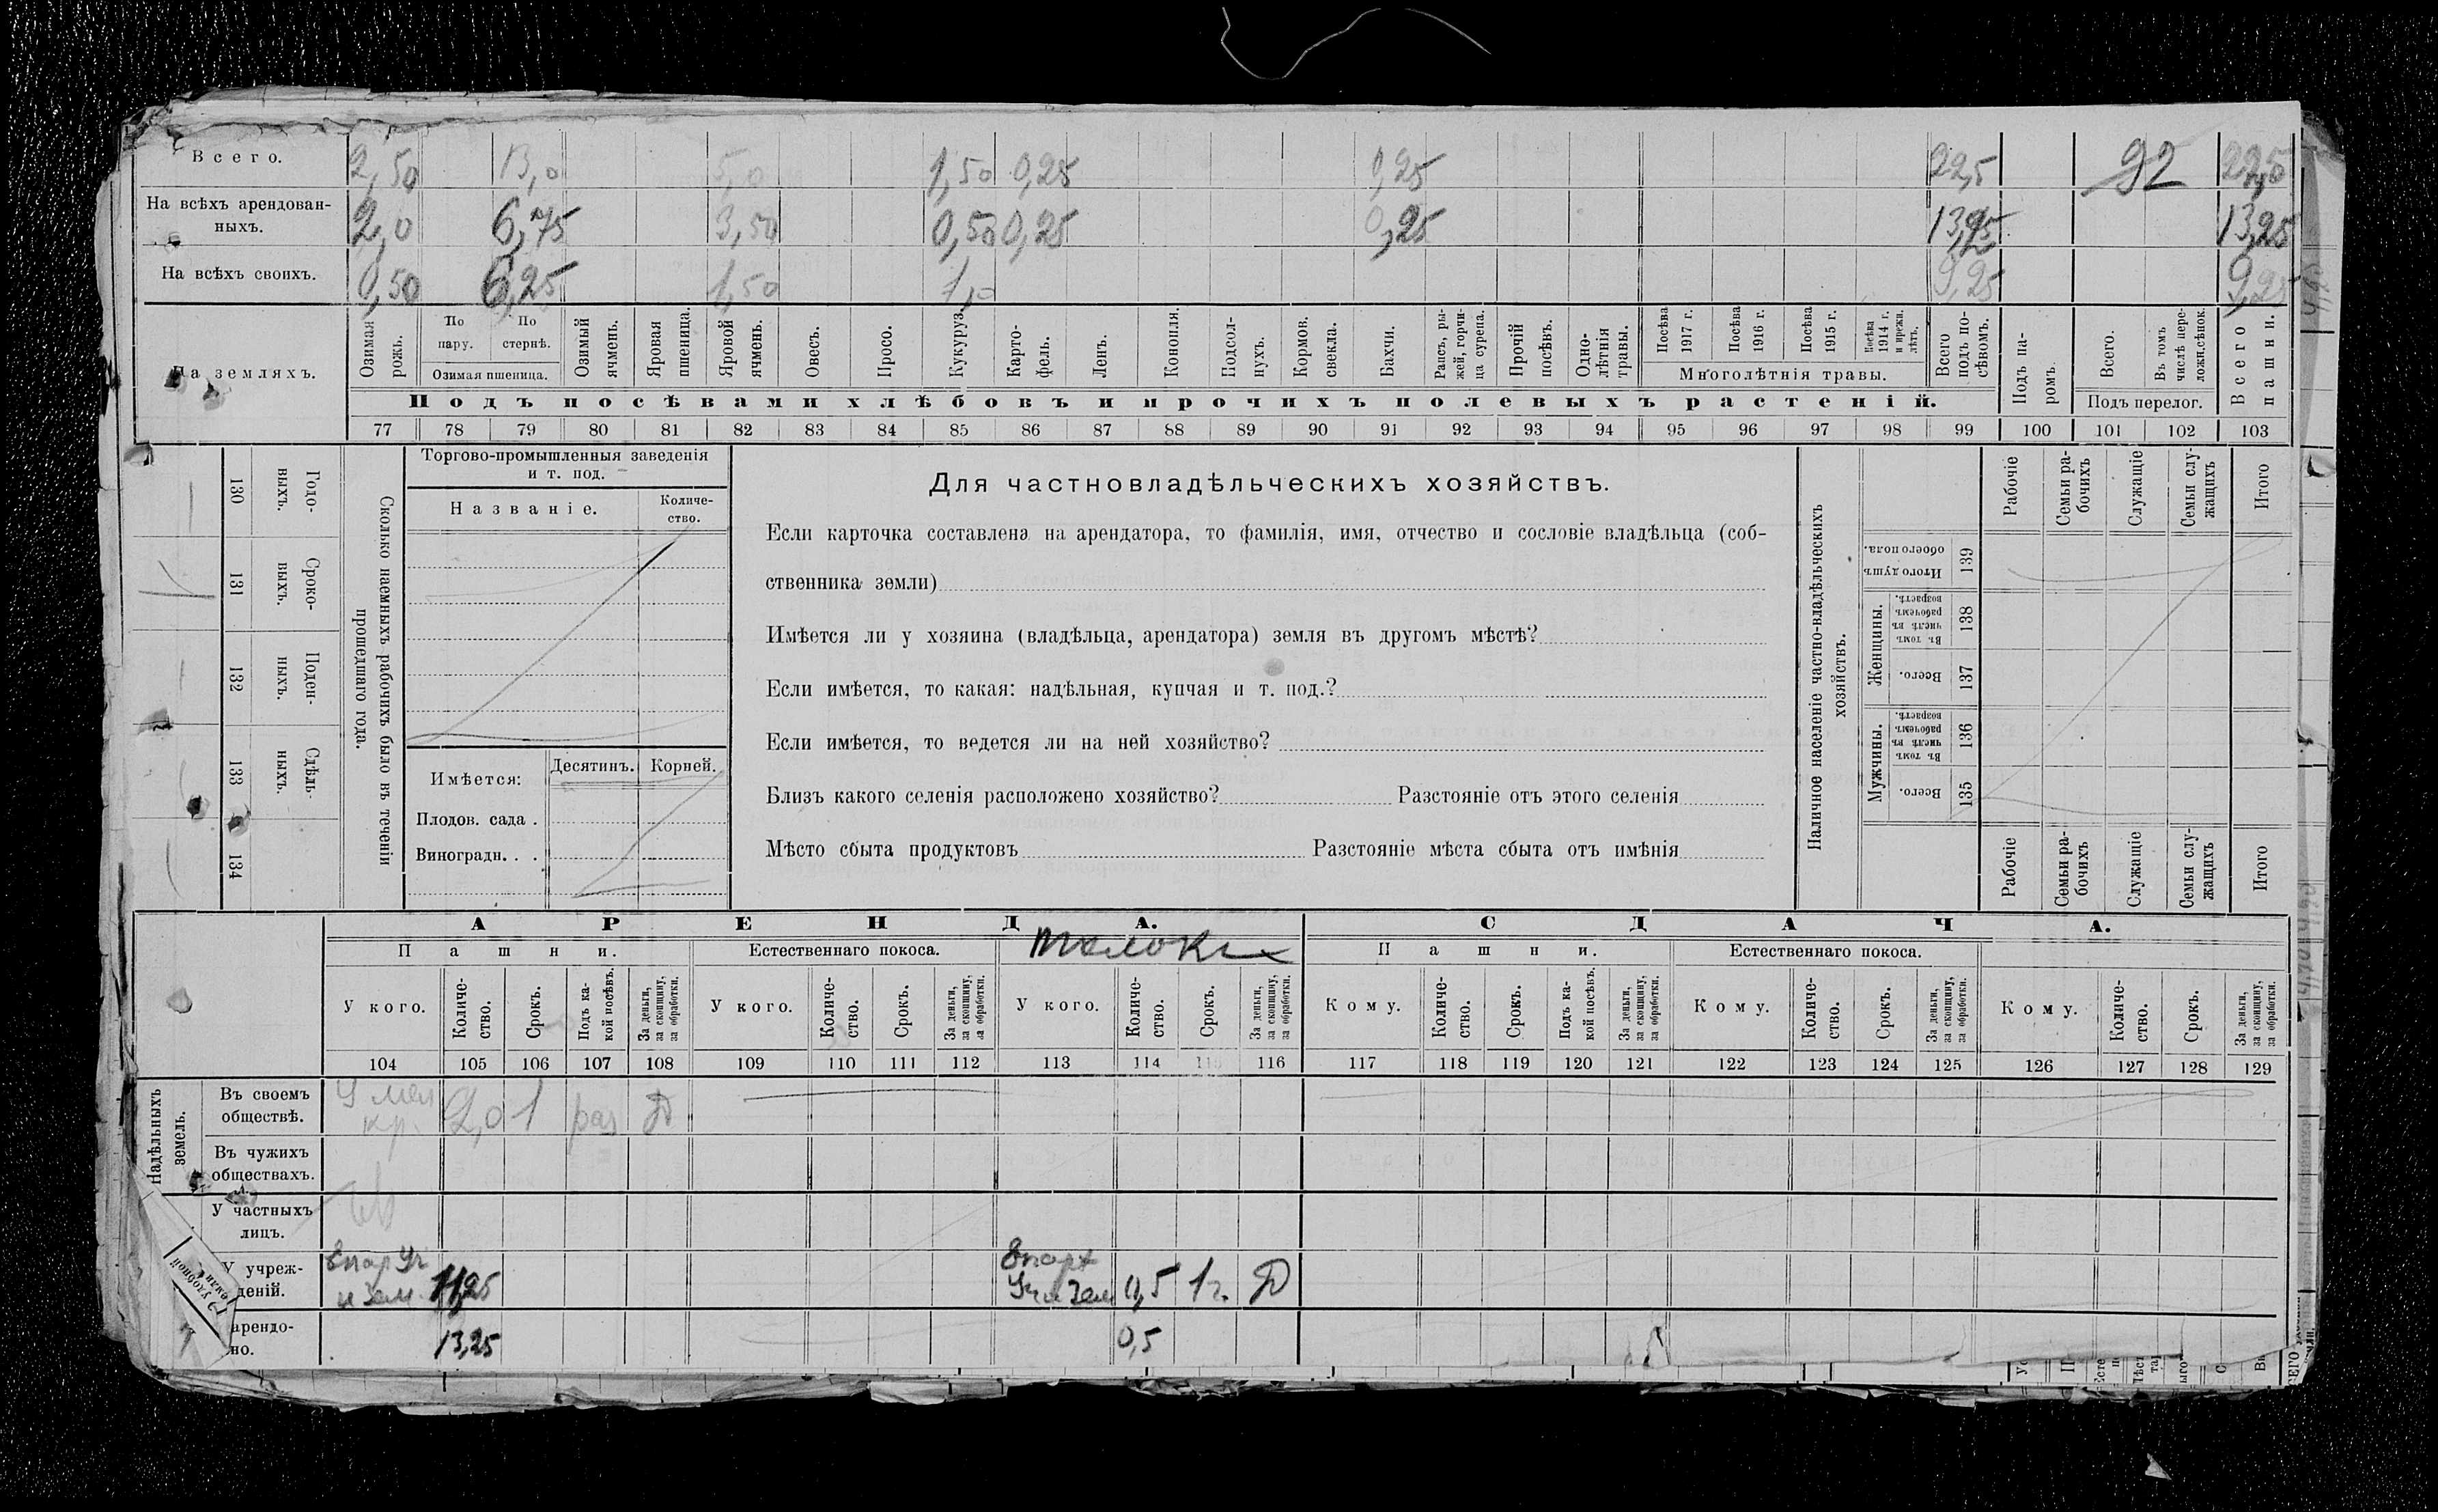 Всего. 2,50 13,0 5,0 1,50 0,25 0,25 22,5 92 22,5
На всѣхъ арендован-
ныхъ. 2,0 6,75 3,50 0,50 0,25 0,25 13,25 13,25
На всѣхъ своихъ. 0,50 6,25 1,50 1,0 9,25 9,25
На земляхъ.
Озимая рожь.
По пару.
По стернѣ.
Озимая пшеница.
Озимый ячмень.
Яровая пшеница.
Яровой ячмень.
Овесъ.
Просо.
Кукуруз.
Карто-
фель.
Ленъ.
Конопля.
Подсол-
нухъ.
Кормов. свекла.
Бахчи.
Рапсъ, ры-
жей, горчи-
ца сурепа.
Прочій посѣвъ.
Одно-
лѣтнія травы.
Посѣва 1917 г.
Посѣва 1916 г.
Посѣва 1915 г.
Посѣва 1914 г. и прежн. лѣтъ.
Многолѣтнія травы.
Всего подъ по-
сѣвомъ.
Подъ па-
ромъ.
Всего.
Въ томъ числѣ пере-
ложн.сѣнок.
Подъ перелог.
Всего пашни.
Подъ посѣвами хлѣбовъ и прочихъ полевыхъ растеній.
77 78 79 80 81 82 83 84 85 86 87 88 89 90 91 92 93 94 95 96 97 98 99 100 101 102 103
130 Годо-
выхъ.
131 Сроко-
выхъ.
132 Поден-
ныхъ.
133 Сдѣль-
ныхъ.
134
Сколько наемныхъ рабочихъ было въ теченіи
прошедшаго года.
Торгово-промышленныя заведенія
и т. под.
Названіе.
Количе-
ство.
Имѣется:
Десятинъ. Корней.
Плодов. сада .
Виноградн. . .
Для частновладѣльческихъ хозяйствъ.
Если карточка составлена на арендатора, то фамилія, имя, отчество и сословіе владѣльца (соб-
ственника земли)
Имѣется ли у хозяина (владѣльца, арендатора) земля въ другомъ мѣстѣ?
Если имѣется, то какая: надѣльная, купчая и т. под.?
Если имѣется, то ведется ли на ней хозяйство?
Близъ какого селенія расположено хозяйство? Разстояніе отъ этого селенія
Мѣсто сбыта продуктовъ Разстояніе мѣста сбыта отъ имѣнія
Наличное населеніе частно-владѣльческихъ
хозяйствъ.
Рабочіе
Семьи ра-
бочихъ
Служащіе
Семьи слу-
жащихъ
Итого
Итого душъ обоего пола. 139
Женщины.
Въ томъ числѣ въ рабочемъ возрастѣ. 138
Всего. 137
Мужчины.
Въ томъ числѣ въ рабочемъ возрастѣ. 136
Всего. 135
Рабочіе
Семьи ра-
бочихъ
Служащіе
Семьи слу-
жащихъ
Итого
АРЕНДА. СДАЧА.
Пашни. Естественнаго покоса. Толоки Пашни. Естественнаго покоса.
У кого.
Количе-
ство.
Срокъ.
Подъ ка-
кой посѣвъ.
За деньги, за скопщину, за обработки.
У кого.
Количе-
ство.
Срокъ.
За деньги, за скопщину, за обработки.
У кого.
Количе-
ство.
Срокъ.
За деньги, за скопщину, за обработки.
Кому.
Количе-
ство.
Срокъ.
Подъ ка-
кой посѣвъ.
За деньги, за скопщину, за обработки.
Кому.
Количе-
ство.
Срокъ.
За деньги, за скопщину, за обработки.
Кому.
Количе-
ство.
Срокъ.
За деньги, за скопщину, за обработки.
104 105 106 107 108 109 110 111 112 113 114 115 116 117 118 119 120 121 122 123 124 125 126 127 128 129
Надѣльныхъ
земель.
Въ своемъ
обществѣ. кр. 2,0 1 раз Д
Въ чужихъ
обществахъ.
У частныхъ
лицъ.
У учреж-
деній. 11,25 0,5 1 г. Д
арендо-
но. 13,25 0,5